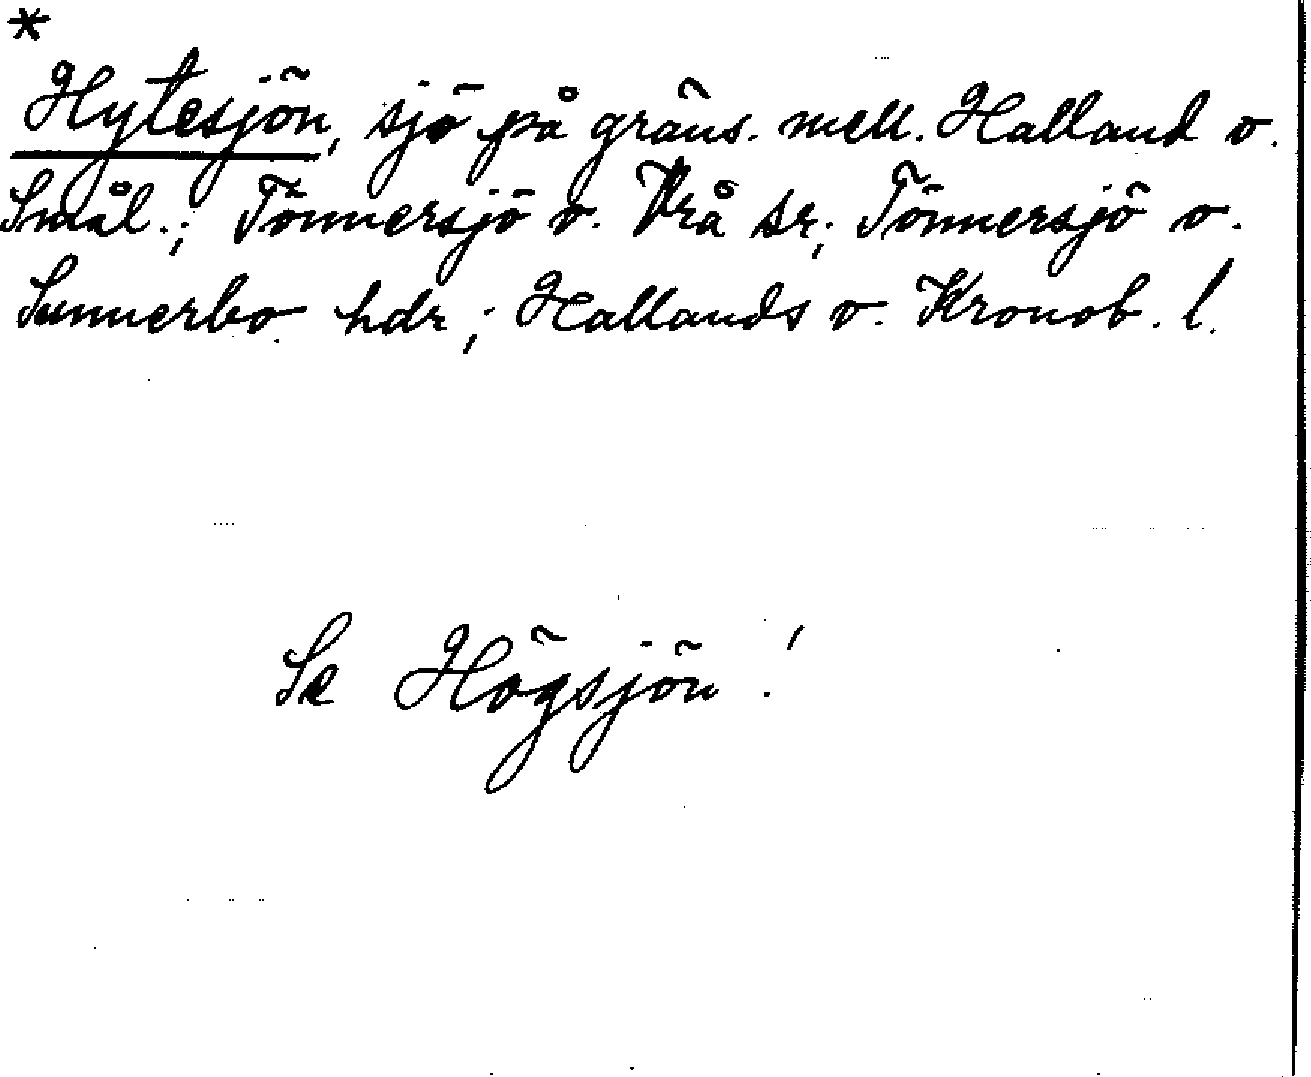 *
Hytesjön, sjö på gräns. mell. Halland o.
Smål.; Tönnersjö o. Vrå sr; Tönnersjö o.
Sunnerbo hdr; Hallands o. Kronob. l.
Se Högsjön!